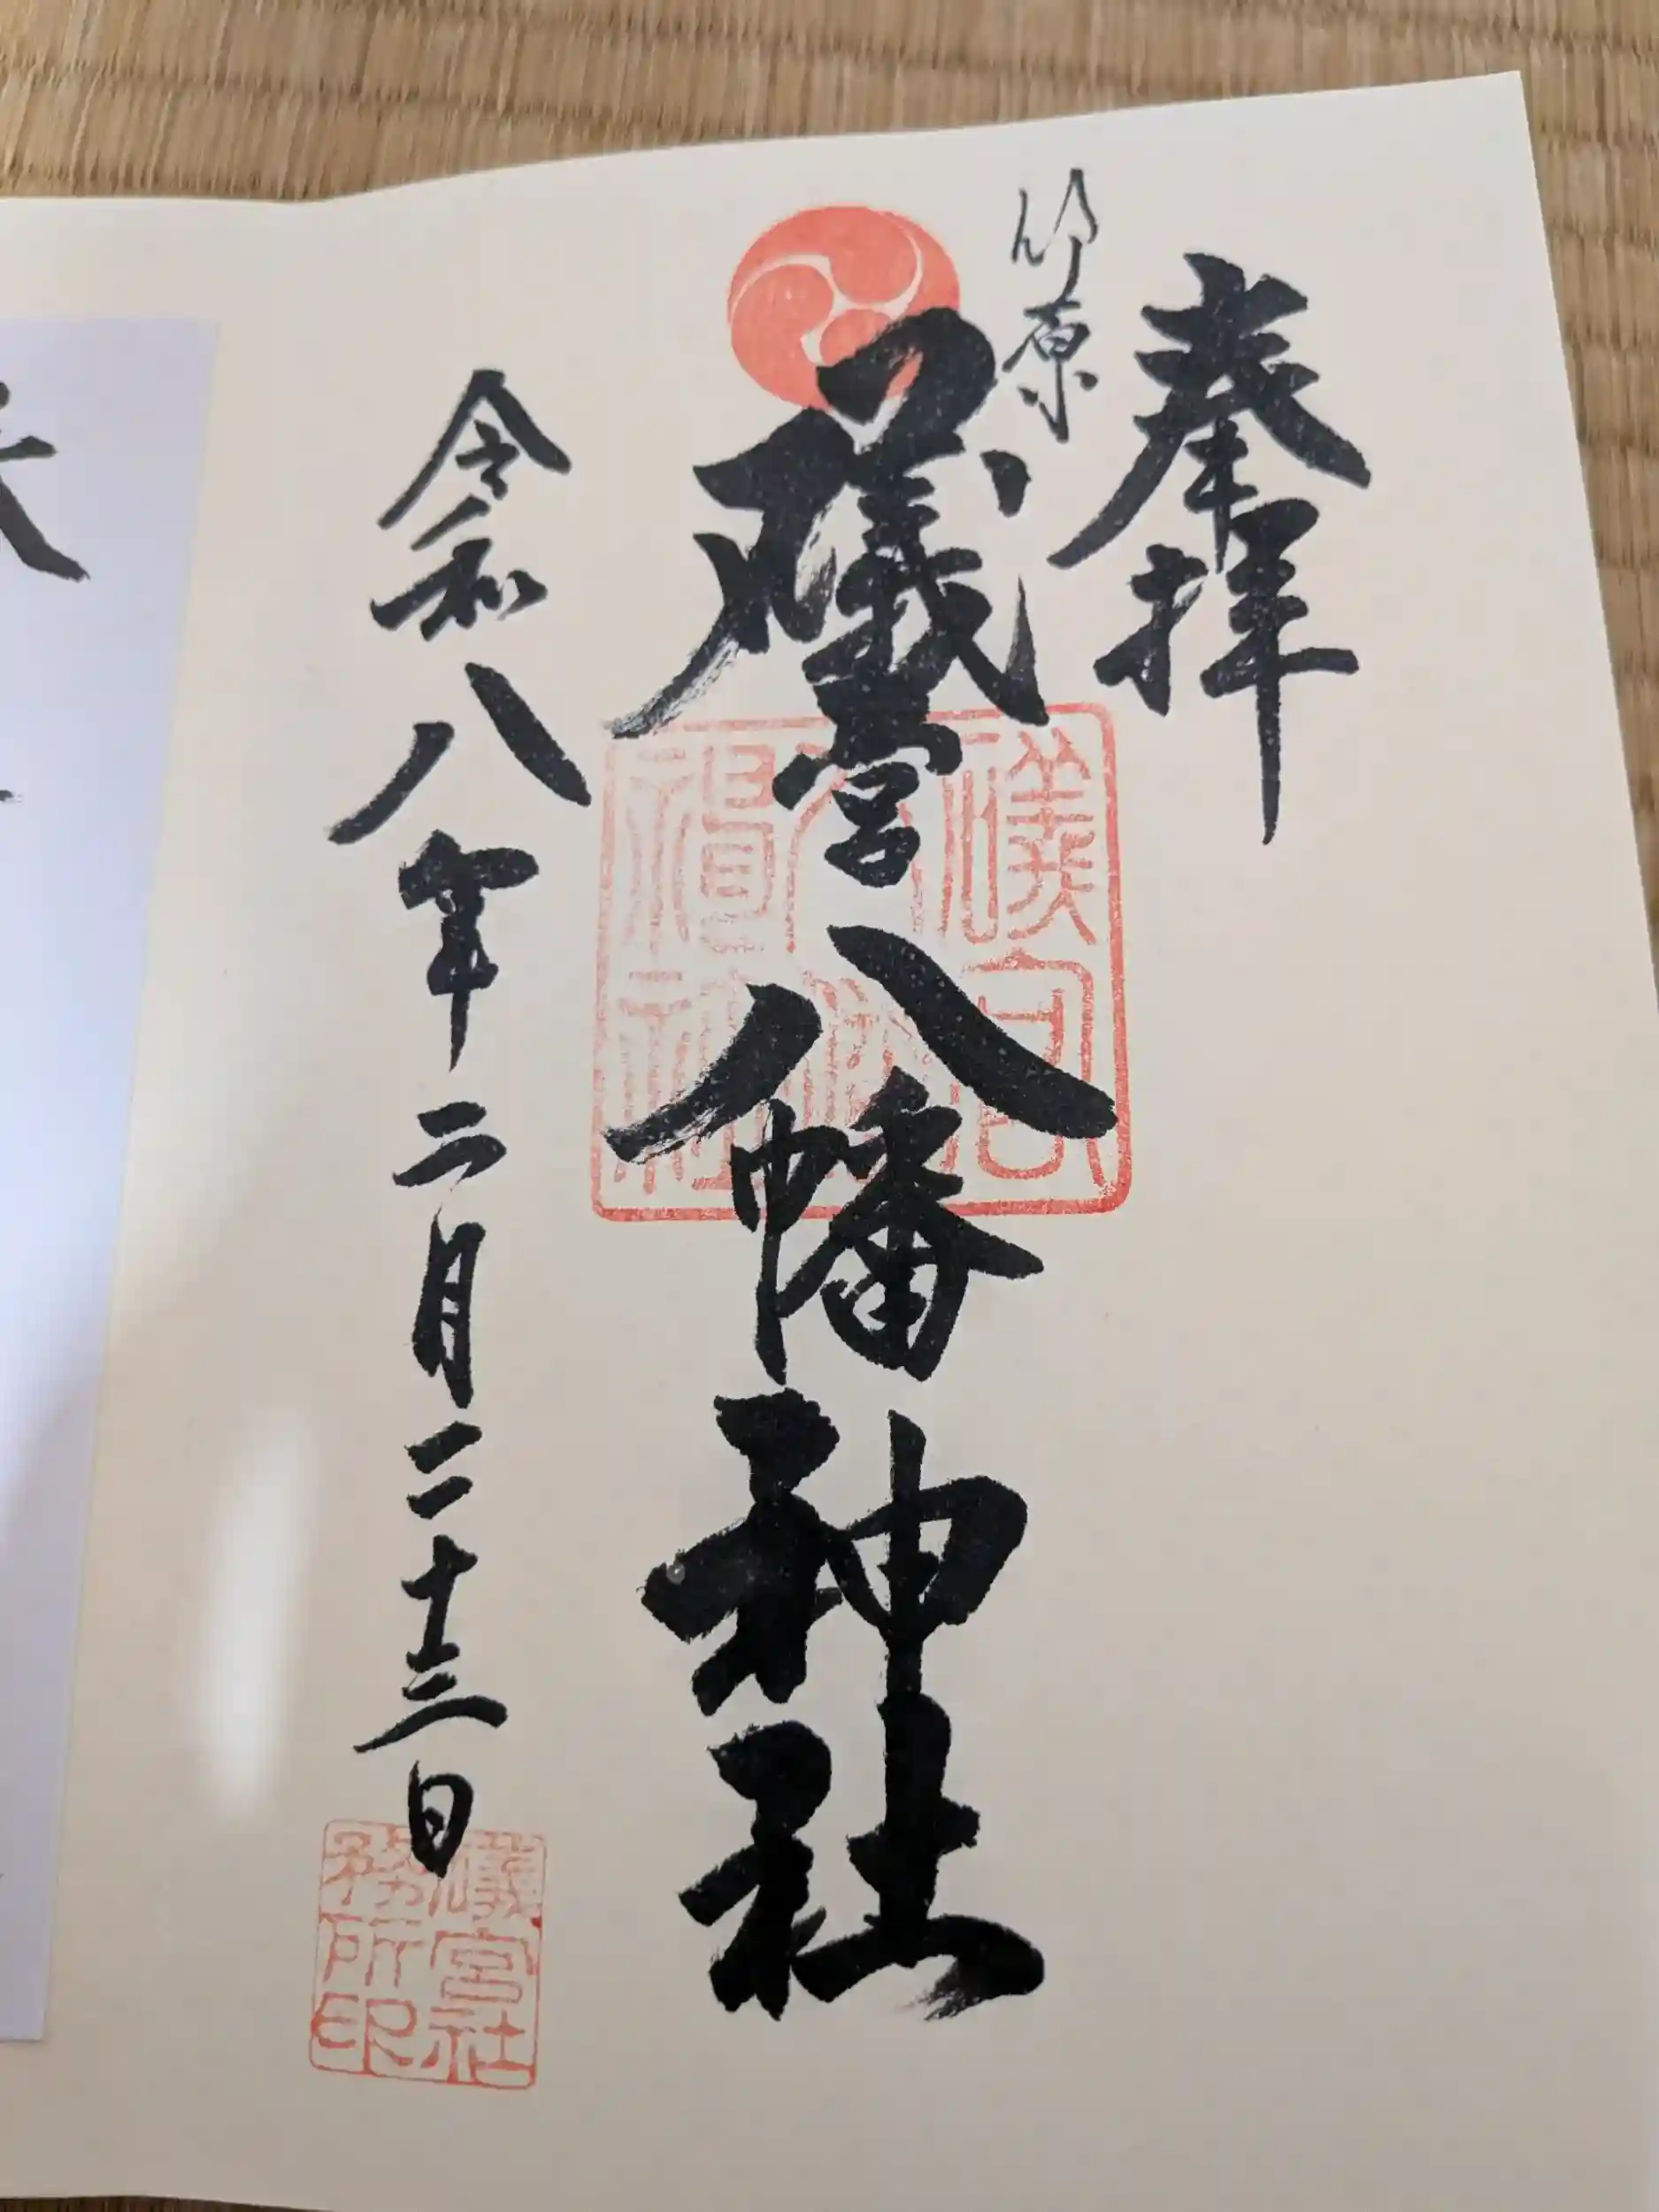 奉拝
竹原
礒宮八幡神社
令和八年二月二十三日
礒宮
八幡
神社
礒宮社
務所印